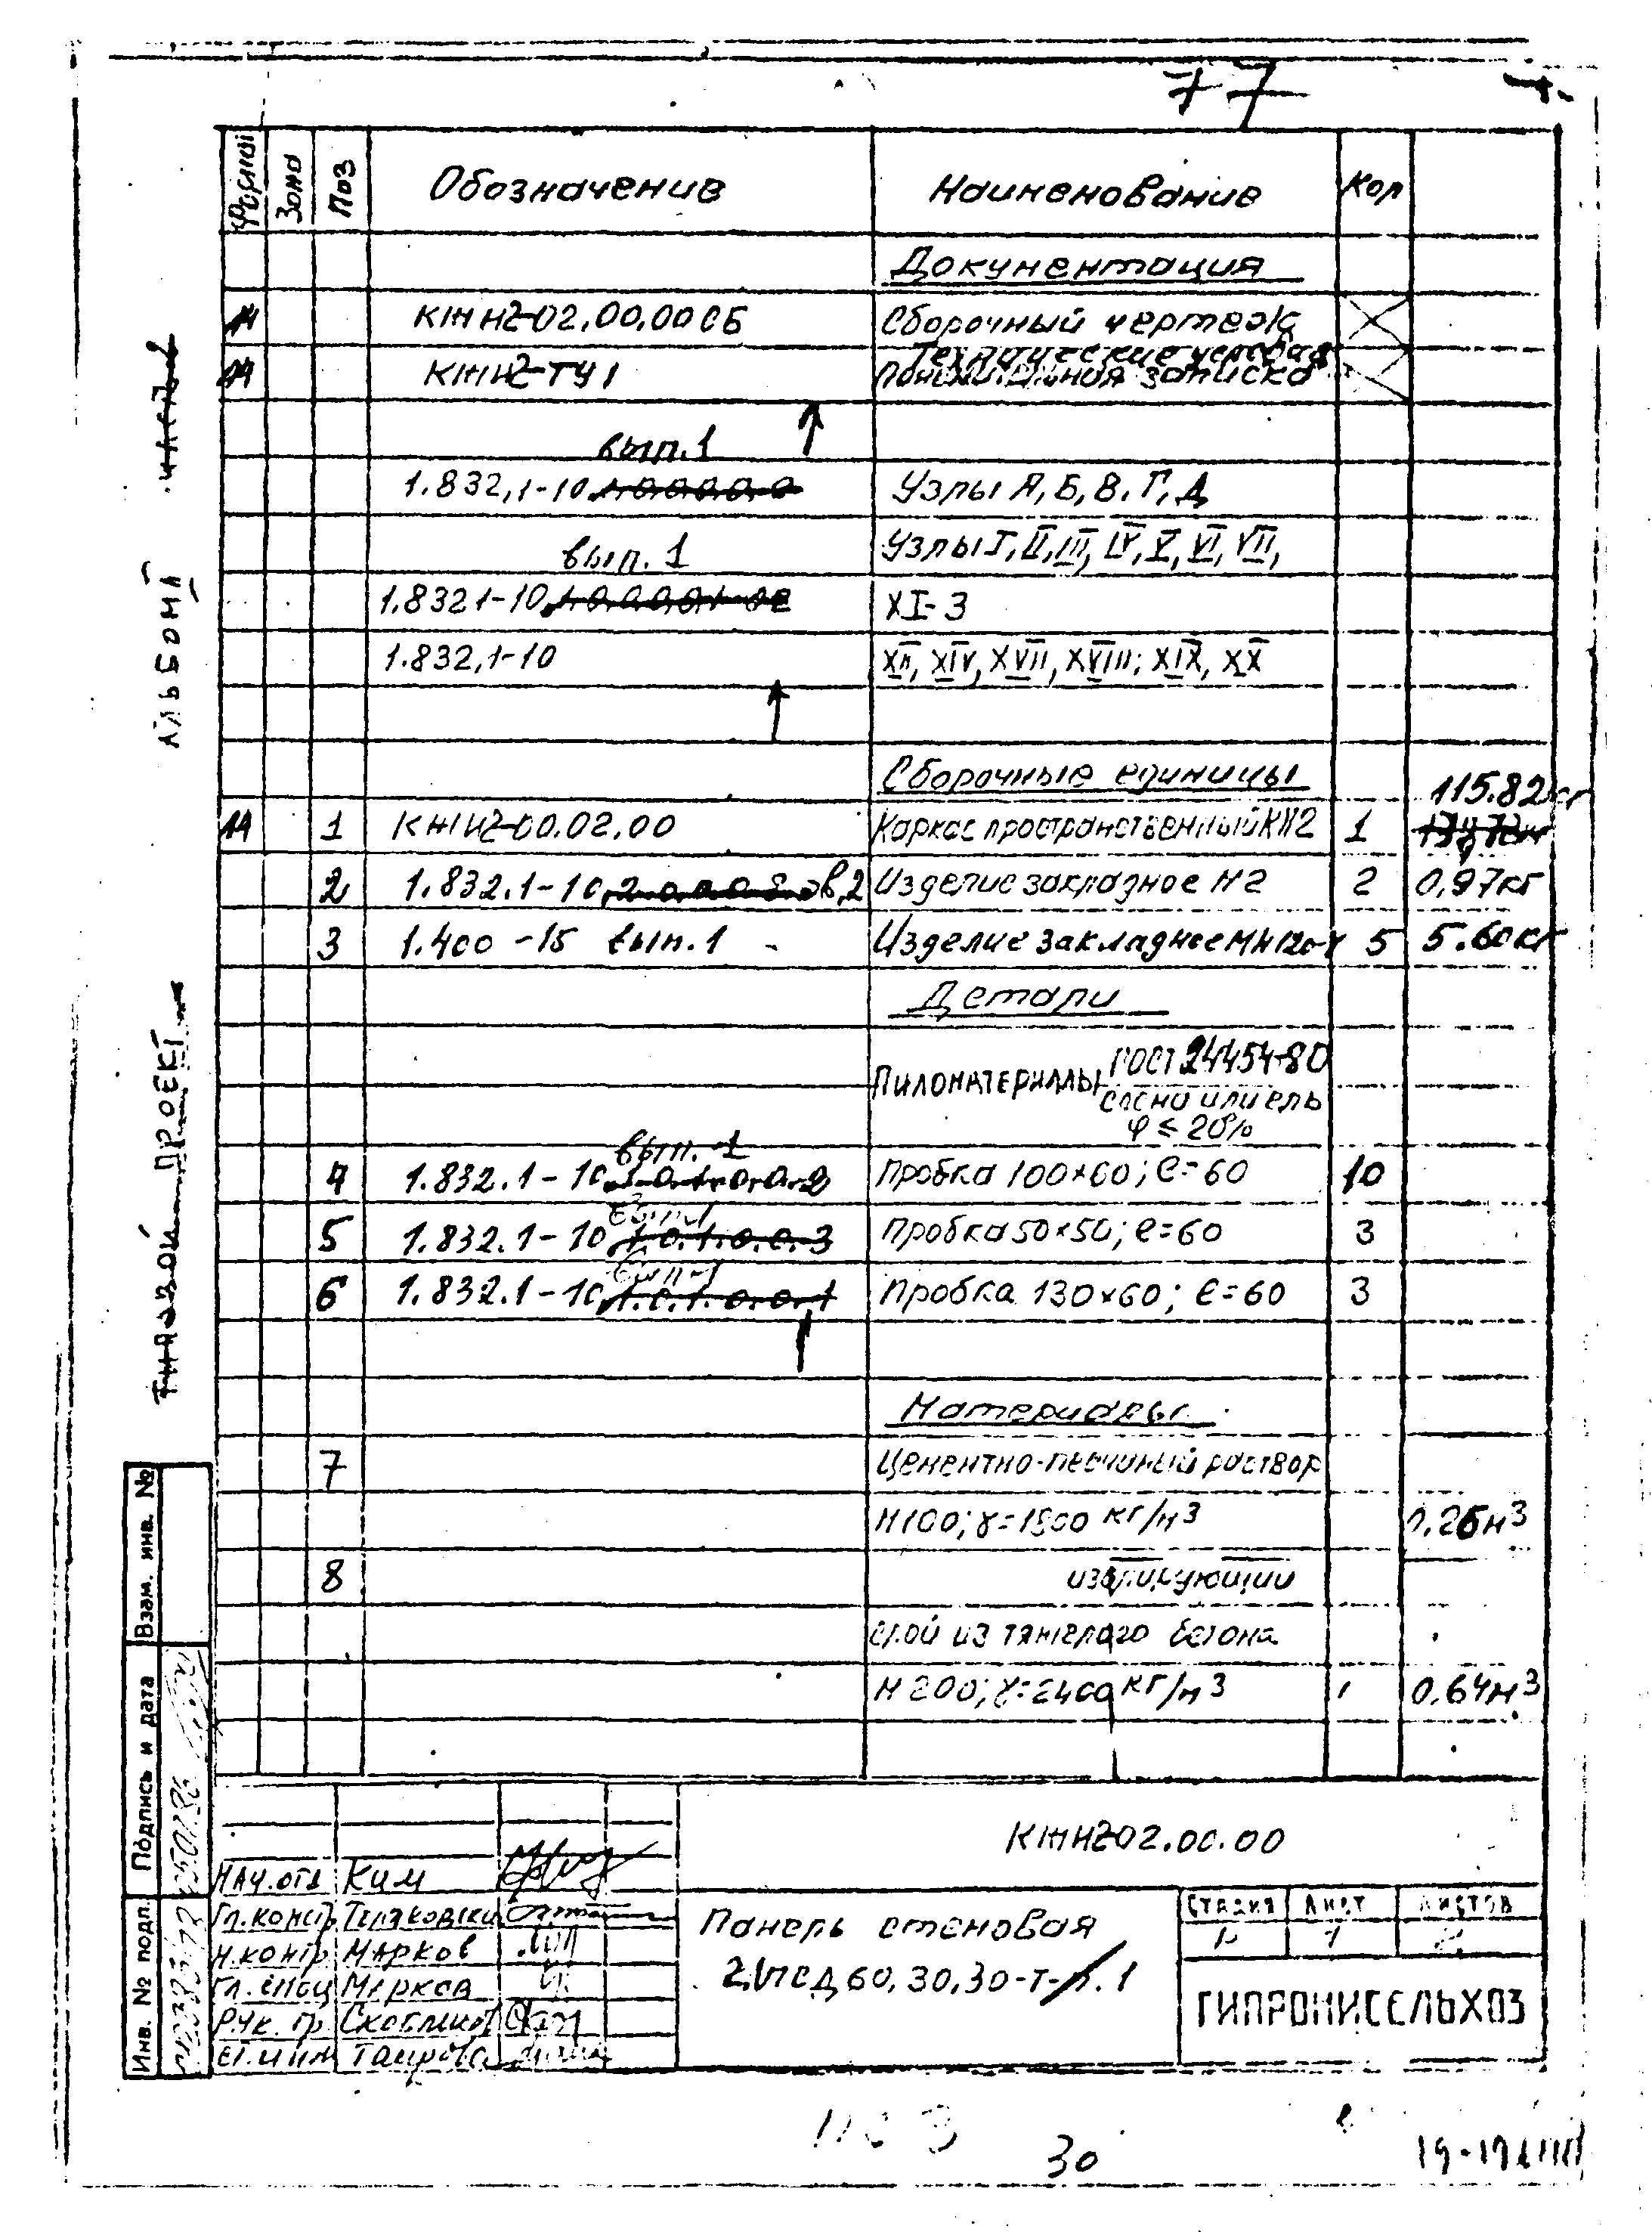 77
Формат Зона Поз Обозначение Наименование Кол
Документация
КЖИ2-02.00.00СБ Сборочный чертеж
Технические условия
КЖИ2-ТУ1 записка
вып.1
1.832,1-10 Узлы А, Б, В, Г, Д
Узлы I, II, III, IV, V, VI, VII,
вып. 1
1.832 1-10 XI-3
1.832,1-10 XII, XIV, XVII, XVIII; XIX, XX
Сборочные единицы
115.82кг
1 КЖИ2-00.02.00 Каркас пространственный КП2 1
2 1.832.1-10 в.2 Изделие закладное М2 2 0,97кг
3 1.400-15 вып.1 Изделие закладное МН120-4 5 5.60кг
Детали
Пиломатериалы ГОСТ 24454-80
сосна или ель
φ ≤ 20%
вып. 1
4 1.832.1-10 Пробка 100×60; ℓ=60 10
вып.1
5 1.832.1-10 Пробка 50×50; ℓ=60 3
вып-1
6 1.832.1-10 Пробка 130×60; ℓ=60 3
Материалы
7 Цементно-песчаный раствор
М100; γ=1800 кг/м3 0.26м3
8 изолирующий
слой из тяжелого бетона
М200; γ=2400 кг/м3 0.64м3
АЛЬБОМ
ПРОЕКТ
Взам. инв. №
Подпись и дата
Инв. № подл.
КЖИ2-02.00.00
Нач.отд Ким
Гл.констр.
Н.контр Марков
Гл. спец Марков
Рук. гр.
Ст.инж Таирова
Панель стеновая
2ПСД 60.30.30-Т-п.1
Стадия Лист Листов
Р 1 2
ГИПРОНИСЕЛЬХОЗ
30